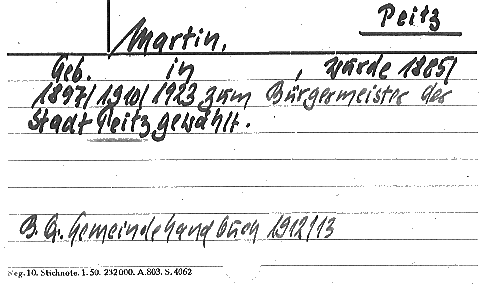 Peitz
Martin,
Geb. in , wurde 1885/
1897/1910/1923 zum Bürgermeister der
Stadt Peitz gewählt.
B. G. Gemeindehandbuch 1912/13
Neg. 10. Stichnote. 1. 50. 232000. A. 803. S. 4062